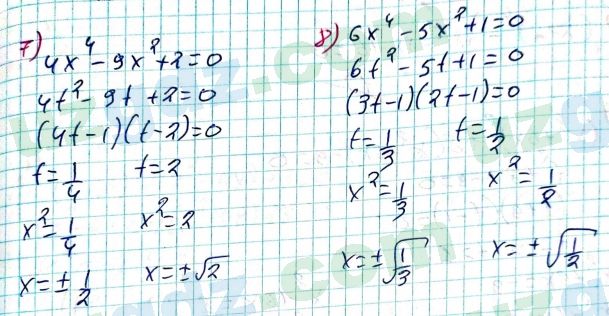 7)
4x⁴ - 9x² + 2 = 0
4t² - 9t + 2 = 0
(4t - 1)(t - 2) = 0
t = 1/4   t = 2
x² = 1/4   x² = 2
x = ± 1/2   x = ± √2
8) 6x⁴ - 5x² + 1 = 0
6t² - 5t + 1 = 0
(3t - 1)(2t - 1) = 0
t = 1/3   t = 1/2
x² = 1/3   x² = 1/2
x = ± √(1/3)   x = ± √(1/2)